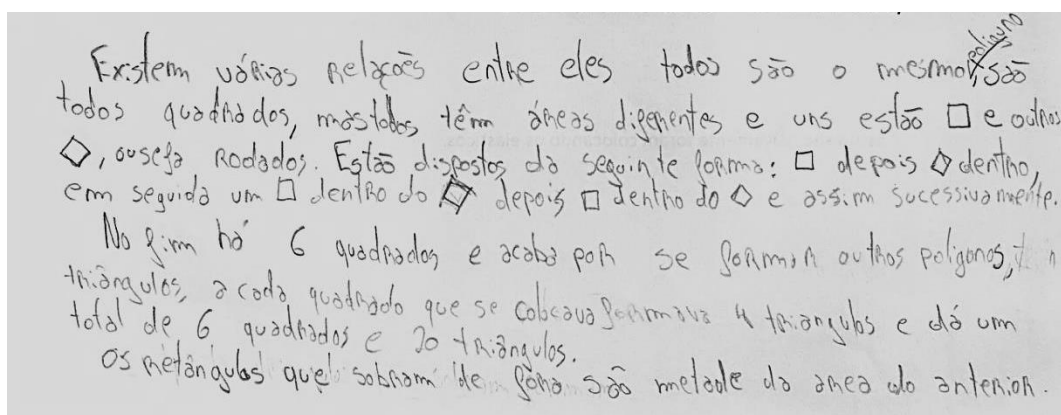 Existem várias relações entre eles todos são o mesmo polígno, são
todos quadrados, mas todos têm áreas diferentes e uns estão □ e outros
◇, ou seja rodados. Estão dispostos da seguinte forma: □ depois ◇ dentro,
em seguida um □ dentro do ◇ depois □ dentro do ◇ e assim sucessivamente.
No fim há 6 quadrados e acaba por se formar outros polígonos,
triângulos, a cada quadrado que se colocava formava 4 triângulos e dá um
total de 6 quadrados e 20 triângulos.
Os retângulos que sobram de fora são metade da area do anterior.